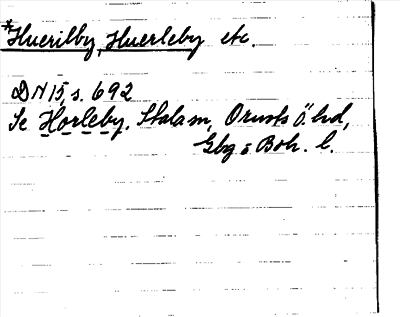 *Huerilby, Huerleby etc.
DN 15, s. 692
Se Horleby, Stala sn, Orusts ö. hd,
Gbg o Boh. l.